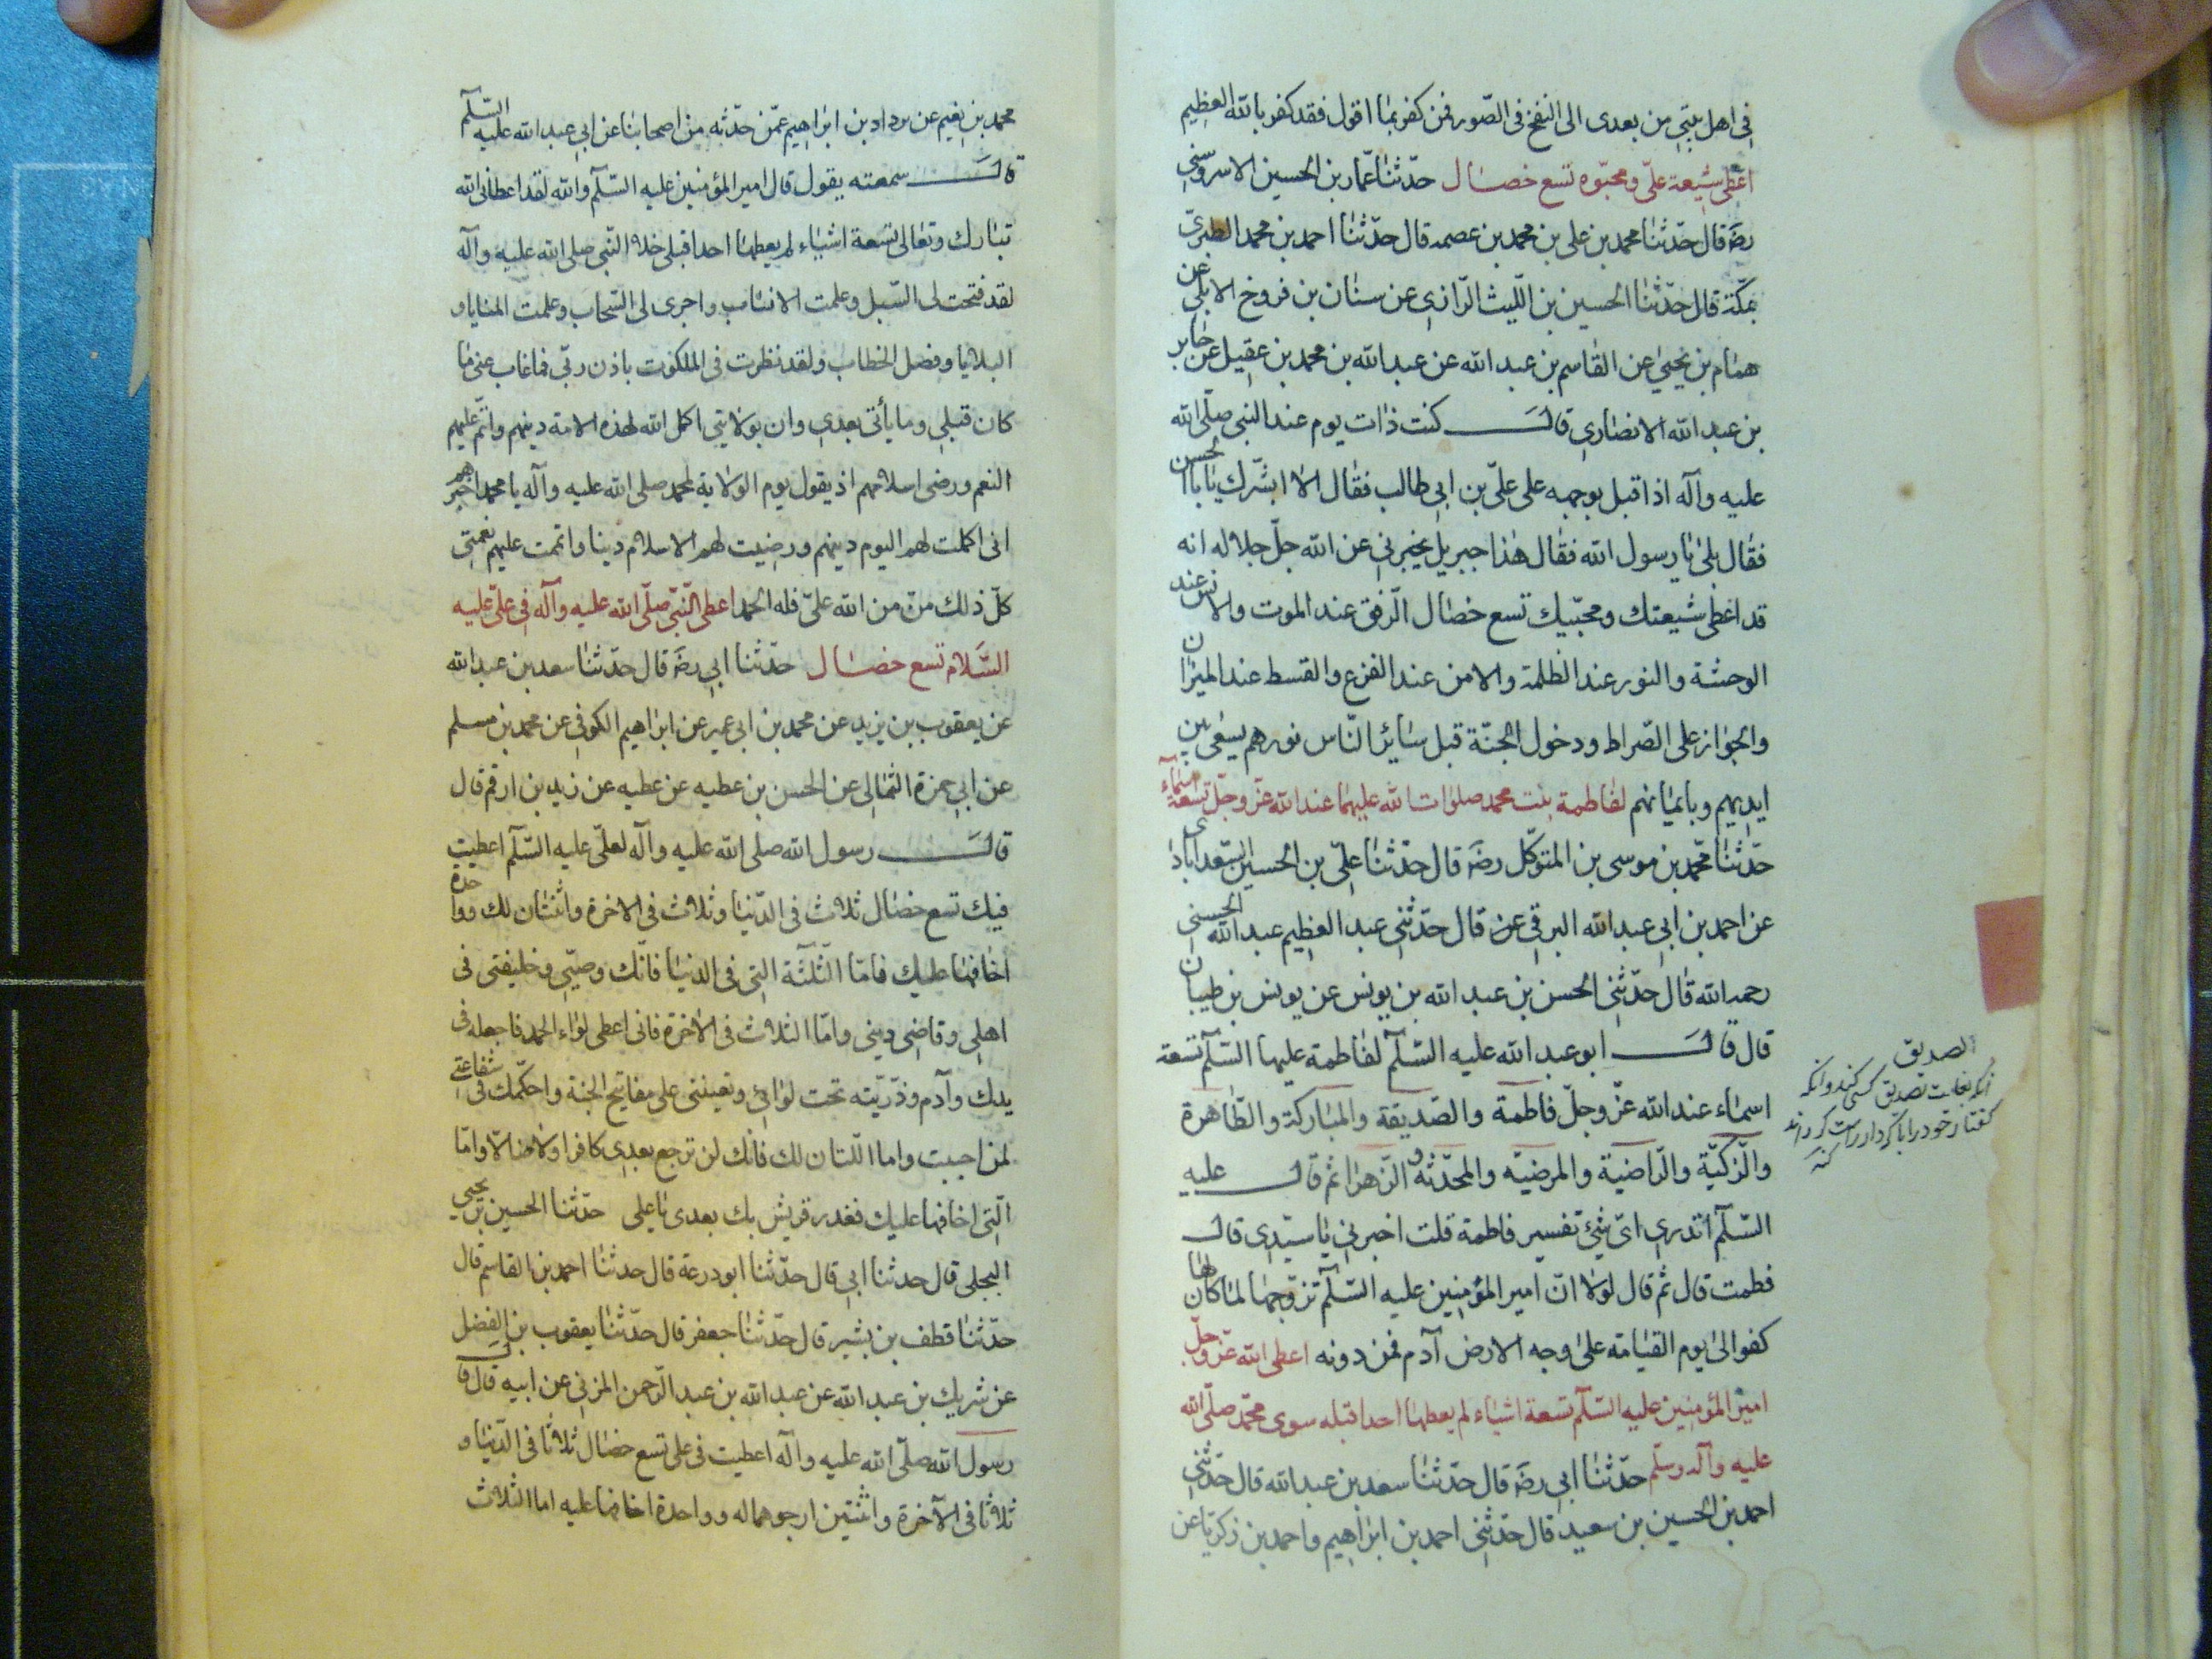 فى اهل بيتى من بعدى الى النفخ فى الصّور فمن كفر بما اقول فقد كفر بالله العظيم
اعطى شيعة علىّ ومحبّوه تسع خصال حدّثنا عمّار بن الحسين الاسروسنى
رضَ قال حدّثنا محمد بن على بن محمد بن عصمه قال حدّثنا احمد بن محمد الطبرىّ
بمكّة قال حدّثنا الحسين بن اللّيث الرّازى عن سنان بن فروخ الابلى عن
همام بن يحيى عن القاسم بن عبد الله عن عبد الله بن محمد بن عقيل عن جابر
بن عبد الله الانصارى قال كنت ذات يوم عند النبى صلّى الله
عليه وآله اذ اقبل بوجهه على علىّ بن ابى طالب فقال الا ابشّرك يا بالحسن
فقال بلى يا رسول الله فقال هذا جبريل يخبرنى عن الله جلّ جلاله انه
قد اعطى شيعتك ومحبّيك تسع خصال الرّفق عند الموت والانس عند
الوحشة والنور عند الظلمة والامن عند الفزع والقسط عند الميزان
والجواز على الصّراط ودخول الجنّة قبل سائر النّاس نورهم يسعى بين
ايديهم وبايمانهم لفاطمة بنت محمد صلوات الله عليهما عند الله عزّ وجلّ تسعة اسماء
حدّثنا محمّد بن موسى بن المتوكّل رضَ قال حدّثنا علىّ بن الحسين السّعدابادى
عن احمد بن ابى عبد الله البرقى عن قال حدّثنى عبد العظيم عبد الله الحسنى
رحمه الله قال حدّثنى الحسن بن عبد الله بن يونس عن يونس بن ظبيان
قال قال ابو عبد الله عليه السّلم لفاطمة عليها السّلم تسعة
اسماء عند الله عزّ وجلّ فاطمة والصّديقة والمباركة والطّاهرة
والزّكيّة والرّاضية والمرضيّه والمحدّثة و الزّهرا ثم قال عليه
السّلم اتدرى اىّ شئ تفسير فاطمة قلت اخبرنى يا سيّدى قال
فطمت قال ثم قال لولا انّ امير المؤمنين عليه السّلم تزوّجها لما كان لها
كفو الى يوم القيامة على وجه الارض آدم فمن دونه اعطى الله عزّ وجلّ
امير المؤمنين عليه السّلم تسعة اشياء لم يعطها احدا قبله سوى محمّد صلّى الله
عليه وآله وسلّم حدّثنا ابى رضَ قال حدّثنا سعد بن عبد الله قال حدّثنى
احمد بن الحسين بن سعيد قال حدّثنى احمد بن ابراهيم واحمد بن زكريّا عن
الصديق
آنكه بغايت تصديق كسى كند وآنكه
كفتار خود را با كردار راست كرداند
محمد بن نعيم عن يرداد بن ابراهيم عمّن حدّثه من اصحابنا عن ابى عبد الله عليه السّلم
قال سمعته يقول قال امير المؤمنين عليه السّلم والله لقد اعطانى الله
تبارك وتعالى تسعة اشياء لم يعطها احدا قبلى خلا النّبى صلى الله عليه وآله
لقد فتحت لى السّبل وعلمت الانساب واجرى لى السّحاب وعلمت المنايا و
البلايا وفصل الخطاب ولقد نظرت فى الملكوت باذن ربّى فما غاب عنى ما
كان قبلى وما يأتى بعدى وان بولايتى اكمل الله لهذه الامة دينهم واتمّ عليهم
النعم ورضى اسلامهم اذ يقول يوم الولاية لمحمد صلى الله عليه وآله يا محمد اخبرهم
انى اكملت لهم اليوم دينهم ورضيت لهم الاسلام دينا واتممت عليهم نعمتى
كلّ ذلك منّ من الله علىّ فله الحمد اعطى النّبىّ صلّى الله عليه وآله فى علىّ عليه
السّلام تسع خصال حدّثنا ابى رضَ قال حدّثنا سعد بن عبد الله
عن يعقوب بن يزيد عن محمد بن ابى عمير عن ابراهيم الكوفى عن محمد بن مسلم
عن ابى حمزة الثمالى عن الحسن بن عطيه عن عطيه عن زيد بن ارقم قال
قال رسول الله صلى الله عليه وآله لعلّى عليه السّلم اعطيت
فيك تسع خصال ثلاث فى الدّنيا وثلاث فى الاخرة واثنتان لك وواحدة
اخافها عليك فامّا الثّلثة التى فى الدنيا فانّك وصيّى وخليفتى فى
اهلى وقاضى دينى وامّا الثلاث فى الاخرة فانى اعطى لواء الحمد فاجعله فى
يدك وآدم وذرّيّته تحت لوائى وتعيننى على مفاتيح الجنة واحكّمك فى شفاعتى
لمن احببت واما اللّتان لك فانّك لن ترجع بعدى كافرا ولا ضالّا وامّا
الّتى اخافها عليك فغدر قريش بك بعدى يا على حدّثنا الحسين بن يحيى
البجلى قال حدثنا ابى قال حدّثنا ابو درعة قال حدثنا احمد بن القاسم قال
حدّثنا قطف بن بشير قال حدّثنا جعفر قال حدّثنا يعقوب بن الفضل
عن شريك بن عبد الله عن عبد الله بن عبد الرّحمن المزنى عن ابيه قال قال
رسول الله صلّى الله عليه وآله اعطيت فى على تسع خصال ثلاثا فى الدّنيا و
ثلاثا فى الآخرة واثنتين ارجوهما له وواحدة اخافها عليه اما الثلاث